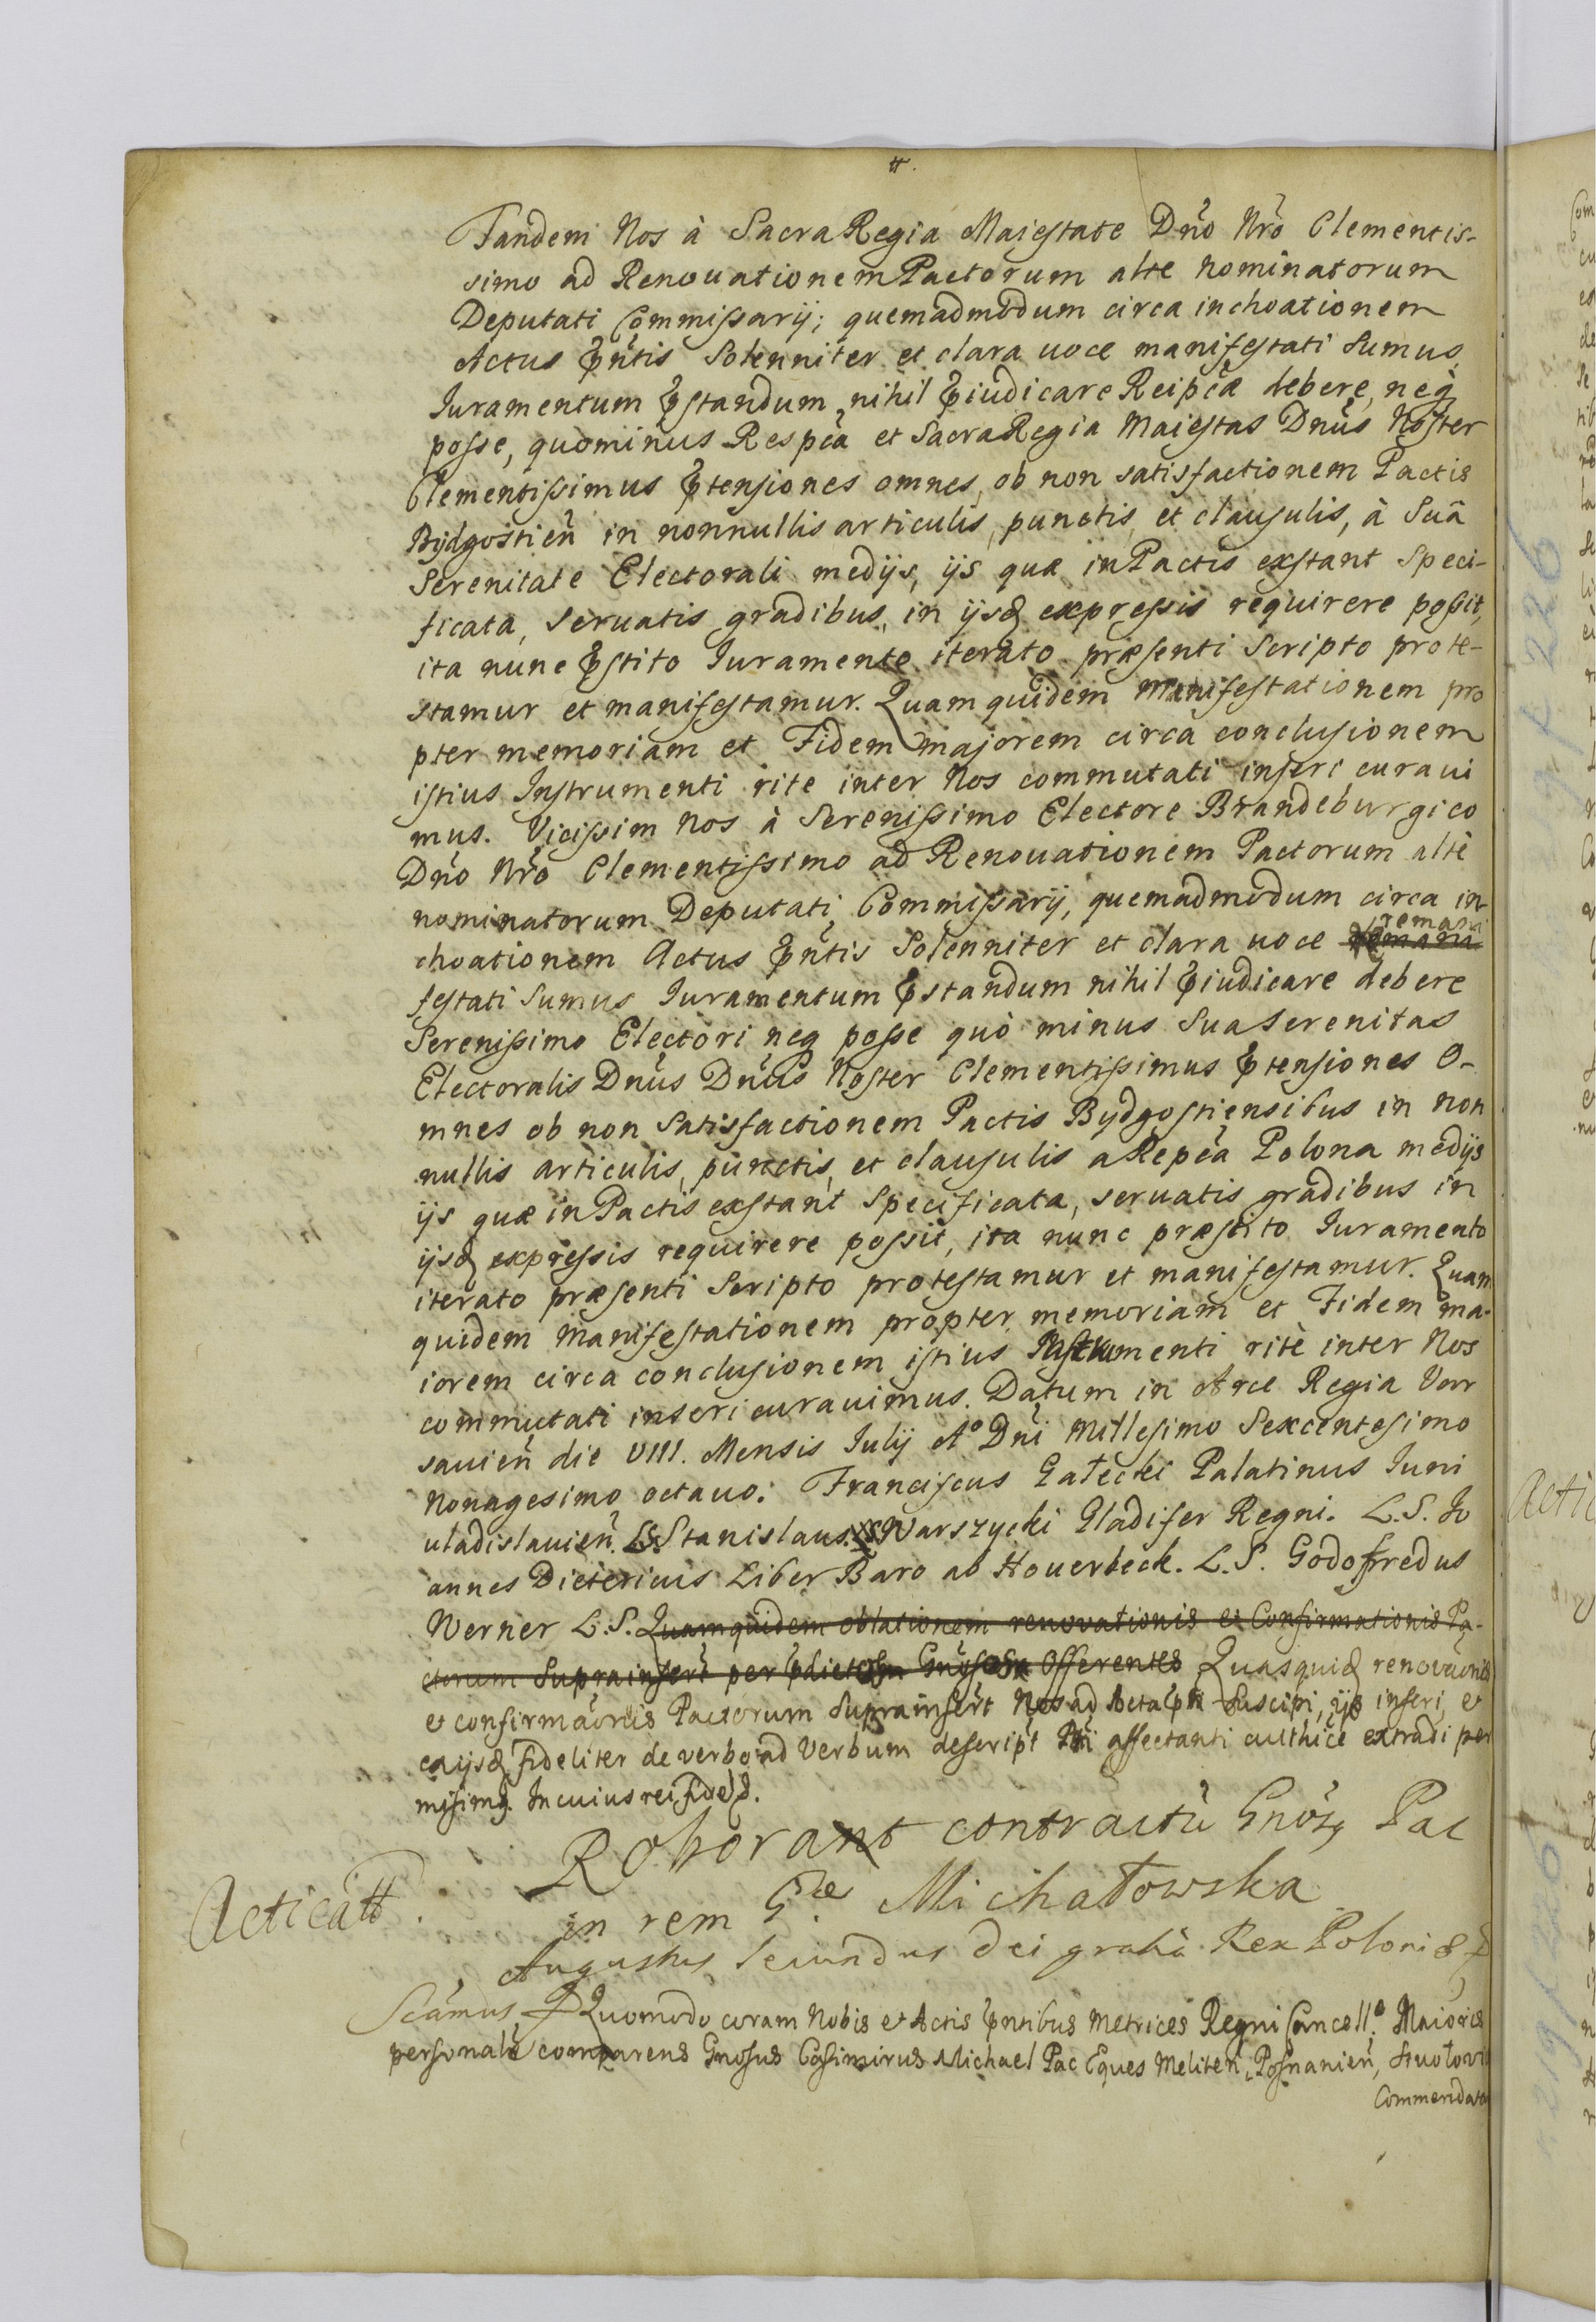 Tandem Nos à Sacra Regia Maiestate Dnõ Nrõ Clementis-
simo ad Renouationem Pactorum alte nominatorum
Deputati Commissarij; quemadmodum circa inchoationem
Actus Pñtis Solenniter et clara uoce manifestati Sumus,
Iuramentum Pstandum, nihil Piudicare Reipcæ debere, neq
posse, quominus Respca et Sacra Regia Maiestas Dnus Noster
Clementissimus Ptensiones omnes, ob non satisfactionem Pactis
Bydgostien in nonnullis articulis, punctis, et clausulis, à Suâ
Serenitate Electorali medijs, ijs quæ in Pactis exstant Speci-
ficata, Seruatis gradibus, in ijsq expressis requirere possit,
ita nunc Pstito Iuramento iterato præsenti Scripto prote-
stamur et manifestamur. Quam quidem manifestationem pro
pter memoriam et Fidem majorem circa conclusionem
istius Instrumenti rite inter Nos commutati inseri curaui
mus. Vicissim Nos à Serenissimo Electore Brandeburgico
Dnõ Nrõ Clementissimo ad Renouationem Pactorum altè
nominatorum Deputati Commissarij, quemadmodum circa in-
choationem Actus Pñtis Solenniter et clara uoce remani
festati Sumus Iuramentum Pstandum nihil Piudicare debere
Serenissimo Electori neq posse quò minus Sua Serenitas
Electoralis Dnus Dnus Noster Clementissimus Ptensiones O-
mnes ob non Satisfactionem Pactis Bydgostiensibus in non
nullis articulis, punctis, et clausulis a Repca Polona medijs
ijs quæ in Pactis exstant Specificata, seruatis gradibus in
ijsq expressis requirere possit, ita nunc præstito Iuramento
iterato præsenti Scripto protestamur et manifestamur. Quam
quidem manifestationem propter memoriam et Fidem ma-
iorem circa conclusionem istius Instrumenti ritè inter Nos
commutati inseri curauimus. Datum in Arce Regia Varr
sauien die VIII. Mensis Iulij Aº Dni Millesimo Sexcentesimo
Nonagesimo octauo. Franciscus Gałecki Palatinus Iuni
uladislauien. L.S. Stanislaus Warszycki Gladifer Regni. L.S. Jo
annes Dietericus Liber Baro ab Houerbeck. L.S. Godofredus
Werner L.S. Quam quidem oblationem renovationis et Confirmationis Pa-
ctorum Suprainsert per Offerentes Quasquiq renovaonis
et confirmaonis Pactorum Suprainsert Nos ad Acta Suscipi, ijs inseri, et
exijsq fideliter de verbo ad verbum descript affectanti authice extradi per
misimq. In cuius rei fidem
Roborant contractu Gnosq Pac
in rem Michałowska
Acticatt.
Augustus Secundus Dei gratia Rex Poloniæ
Scamus Quomodo coram Nobis et Actis Pntibus Metrices Regni Cancell. Maioris
personalr comparens Gnosus Casimirus Michael Pac Eques Meliten, Posnanien,
Commendat